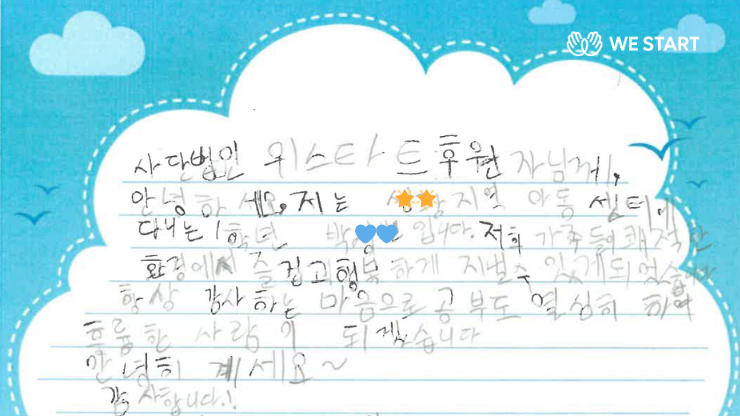 WE START
사단법인 위스타트 후원자님께,
안녕하세요, 저는 지역 아동 센터에
다니는 1학년 입니다. 저희 가족들이 쾌적한
환경에서 즐겁고 행복하게 지낼수 있게되었습니다
항상 감사하는 마음으로 공부도 열심히 하여
훌륭한 사람이 되겠습니다
안녕히 계세요~
감사합니다!